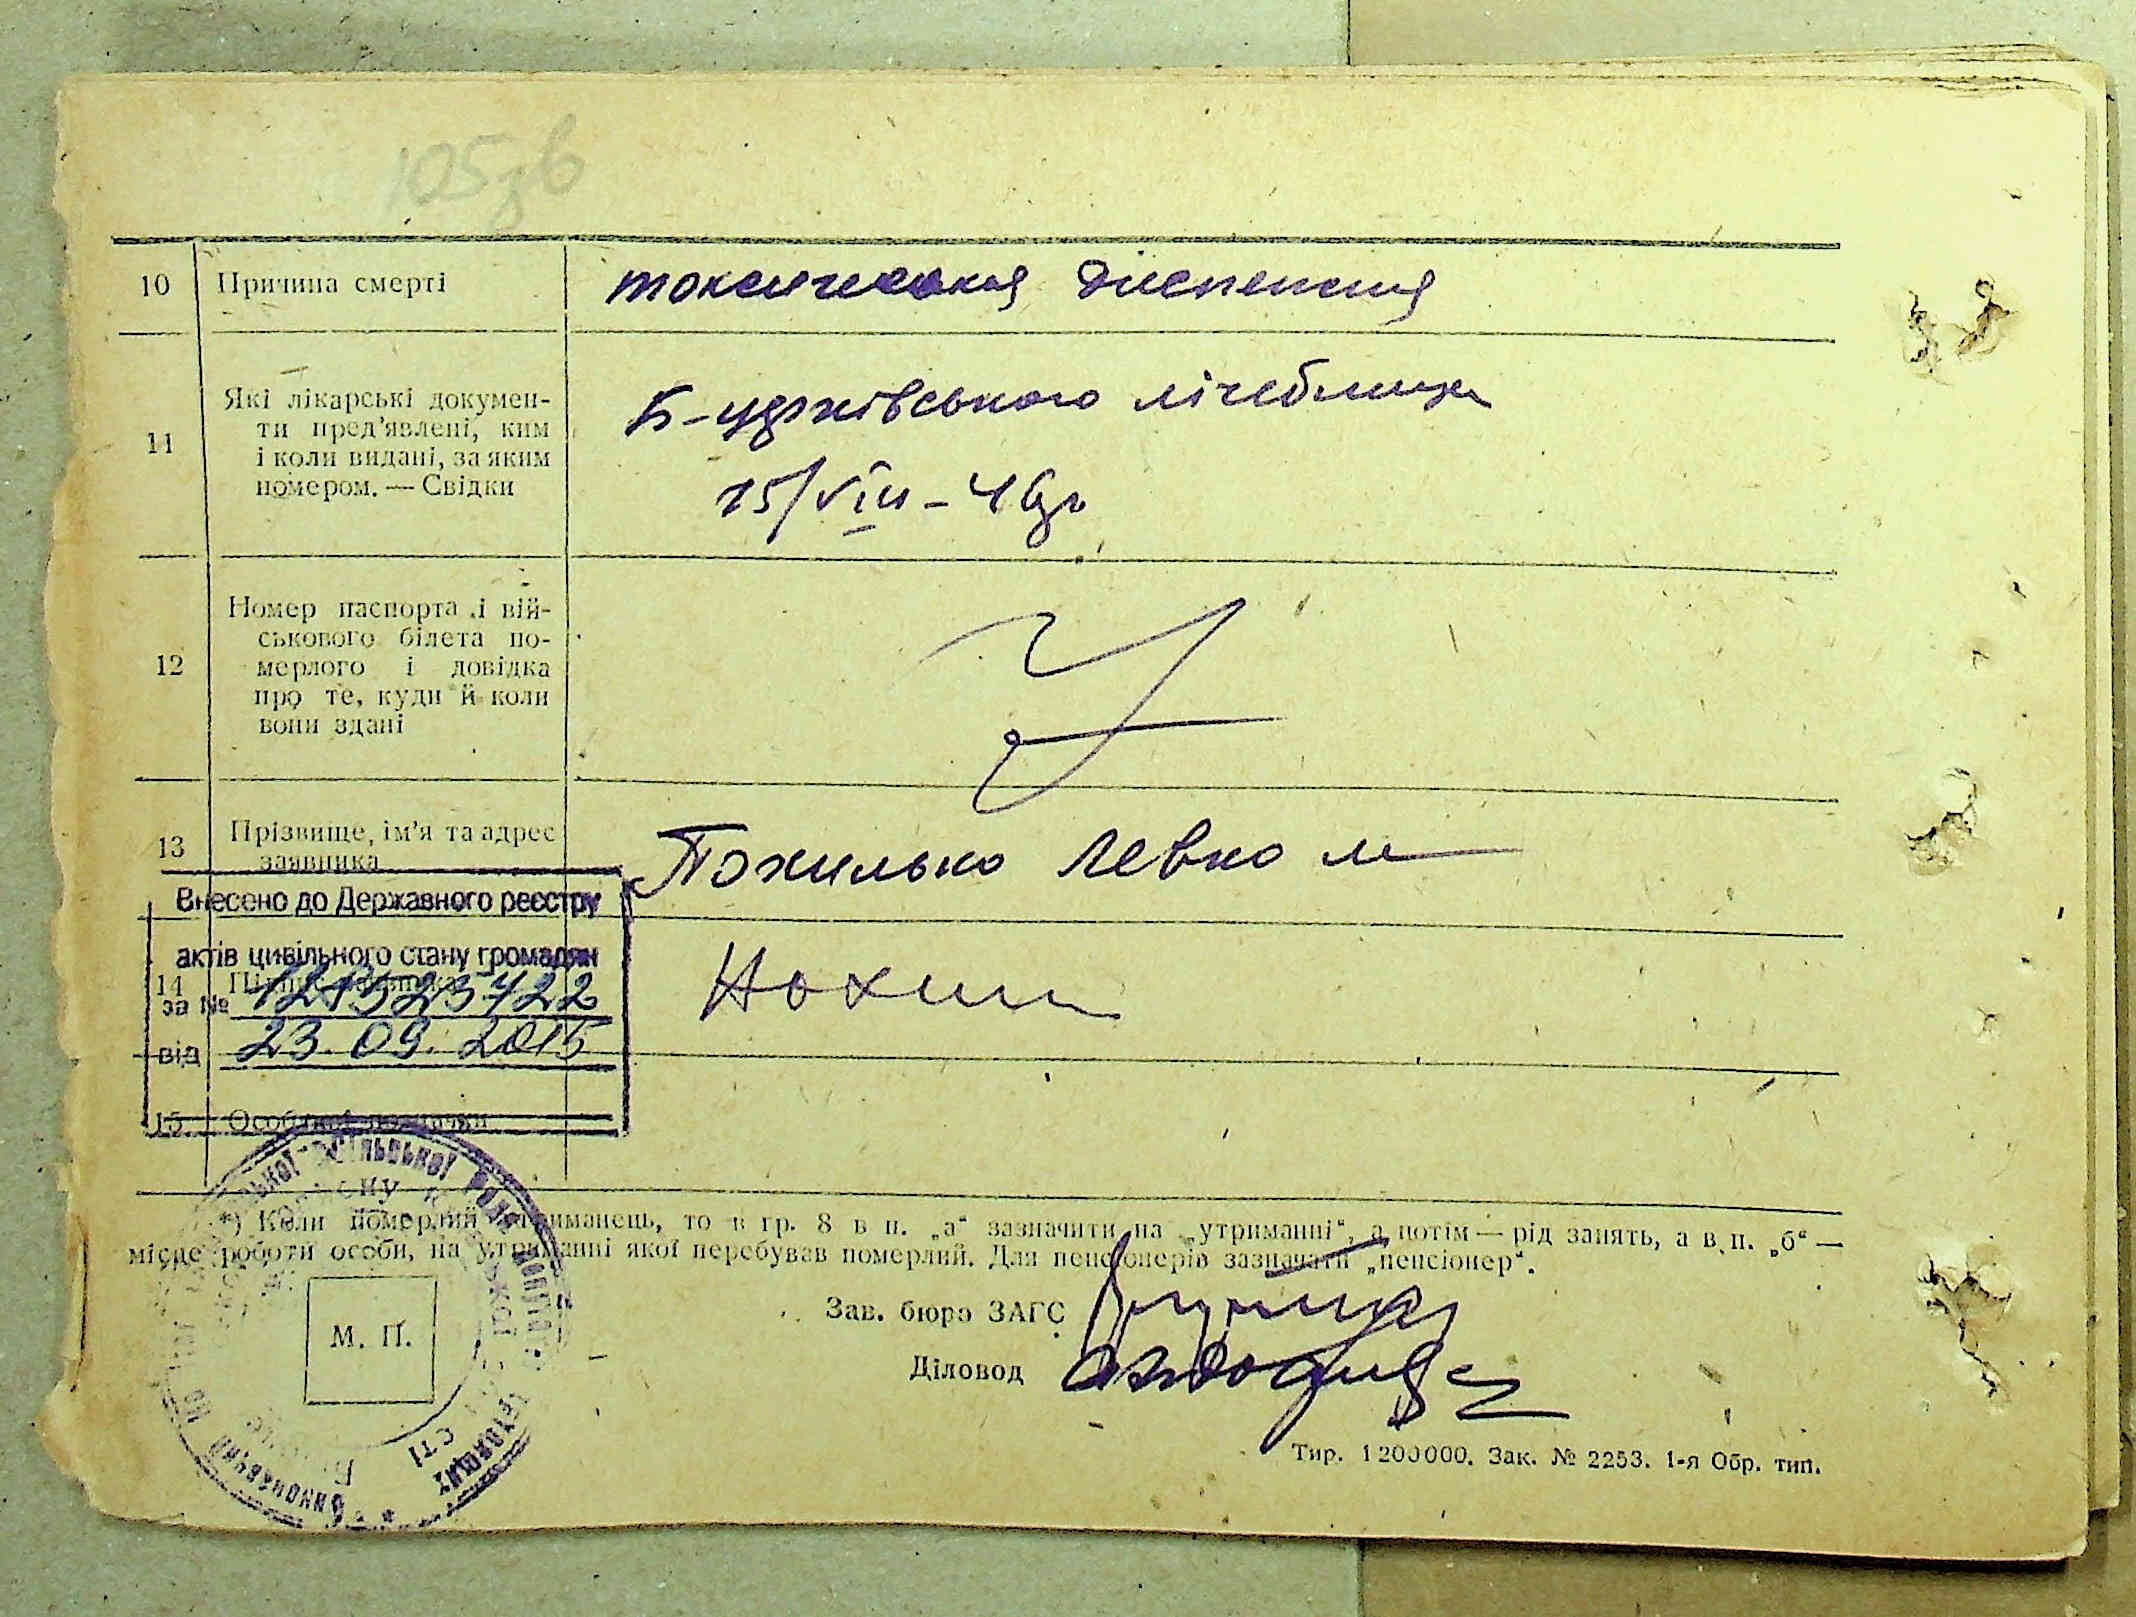 105зв
10 Причина смерті токсическая диспепсия
11 Які лікарські докумен-
ти пред'явлені, ким
і коли видані, за яким
номером. — Свідки
лічебниця
15/VIII – 46р
12 Номер паспорта і вій-
ськового білета по-
мерлого і довідка
про те, куди й коли
вони здані
13 Прізвище, ім'я та адрес
заявника
Похилько Левко М
Внесено до Державного реєстру
актів цивільного стану громадян
14 Підпис заявника
за №
від 23.09.2015
15. Особливі позначки
*) Коли померлий утриманець, то в гр. 8 в п. „а“ зазначити на „утриманні“, а потім — рід занять, а в п. „б“ —
місце роботи особи, на утриманні якої перебував померлий. Для пенсіонерів зазначати „пенсіонер“.
М. П.
Зав. бюро ЗАГС
Діловод
Тир. 1200000. Зак. № 2253. 1-я Обр. тип.